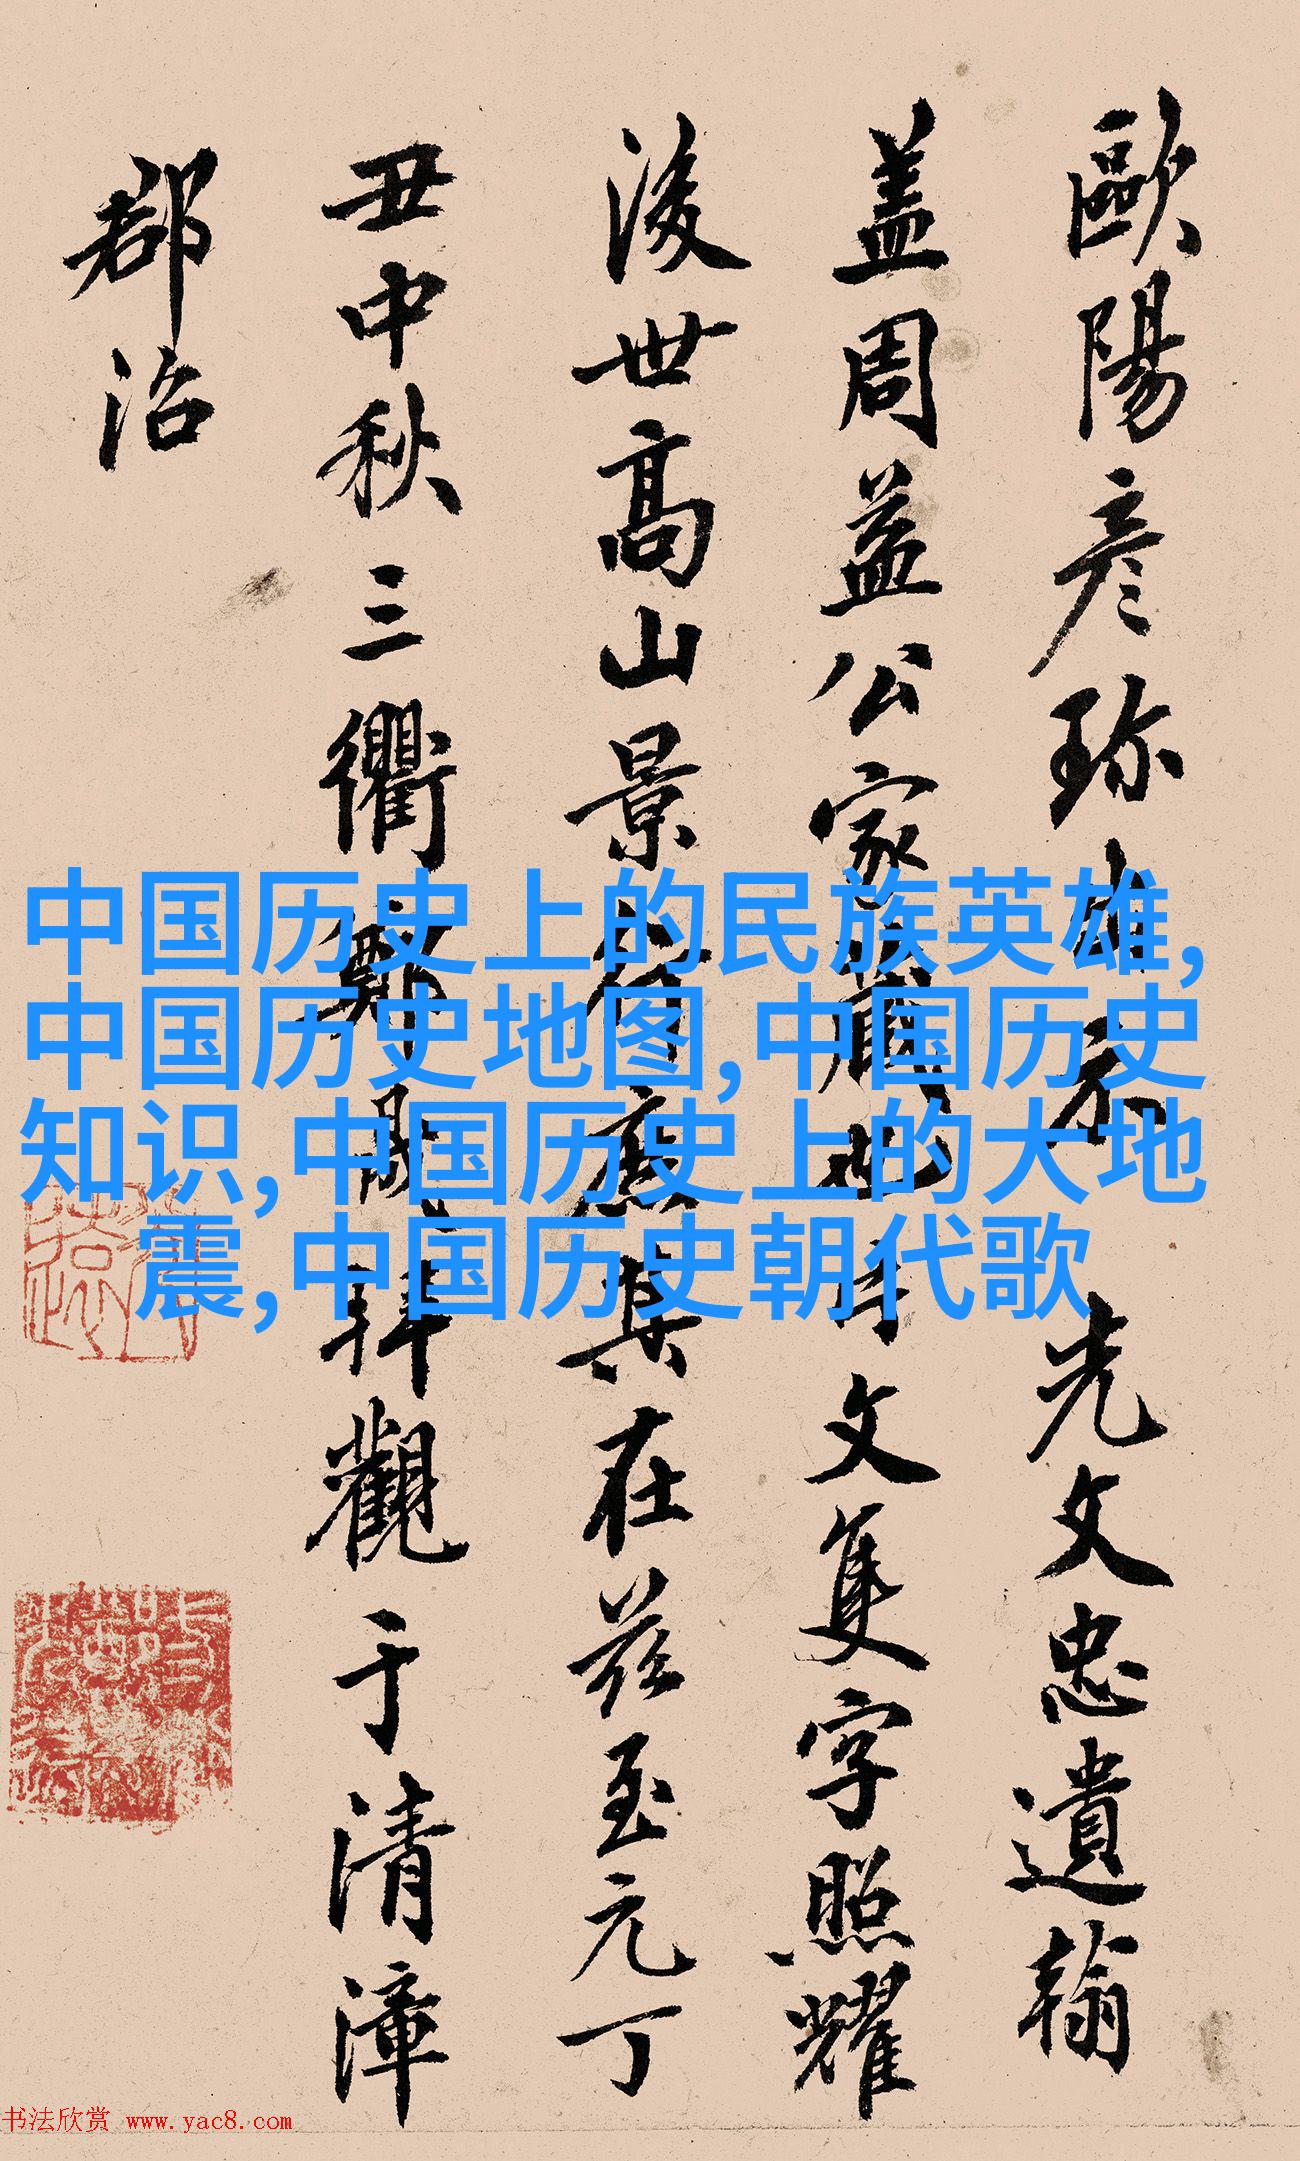 歐陽彦珎出示先文忠遺翰
盖周益公家藏也手文隻字照耀
後世高山景行庶其在茲至元丁
丑中秋三衢鄭 拜觀于清漳
郡治
中国历史上的民族英雄,
中国历史地图,中国历史
知识,中国历史上的大地
震,中国历史朝代歌
书法欣赏 www.yac8.com